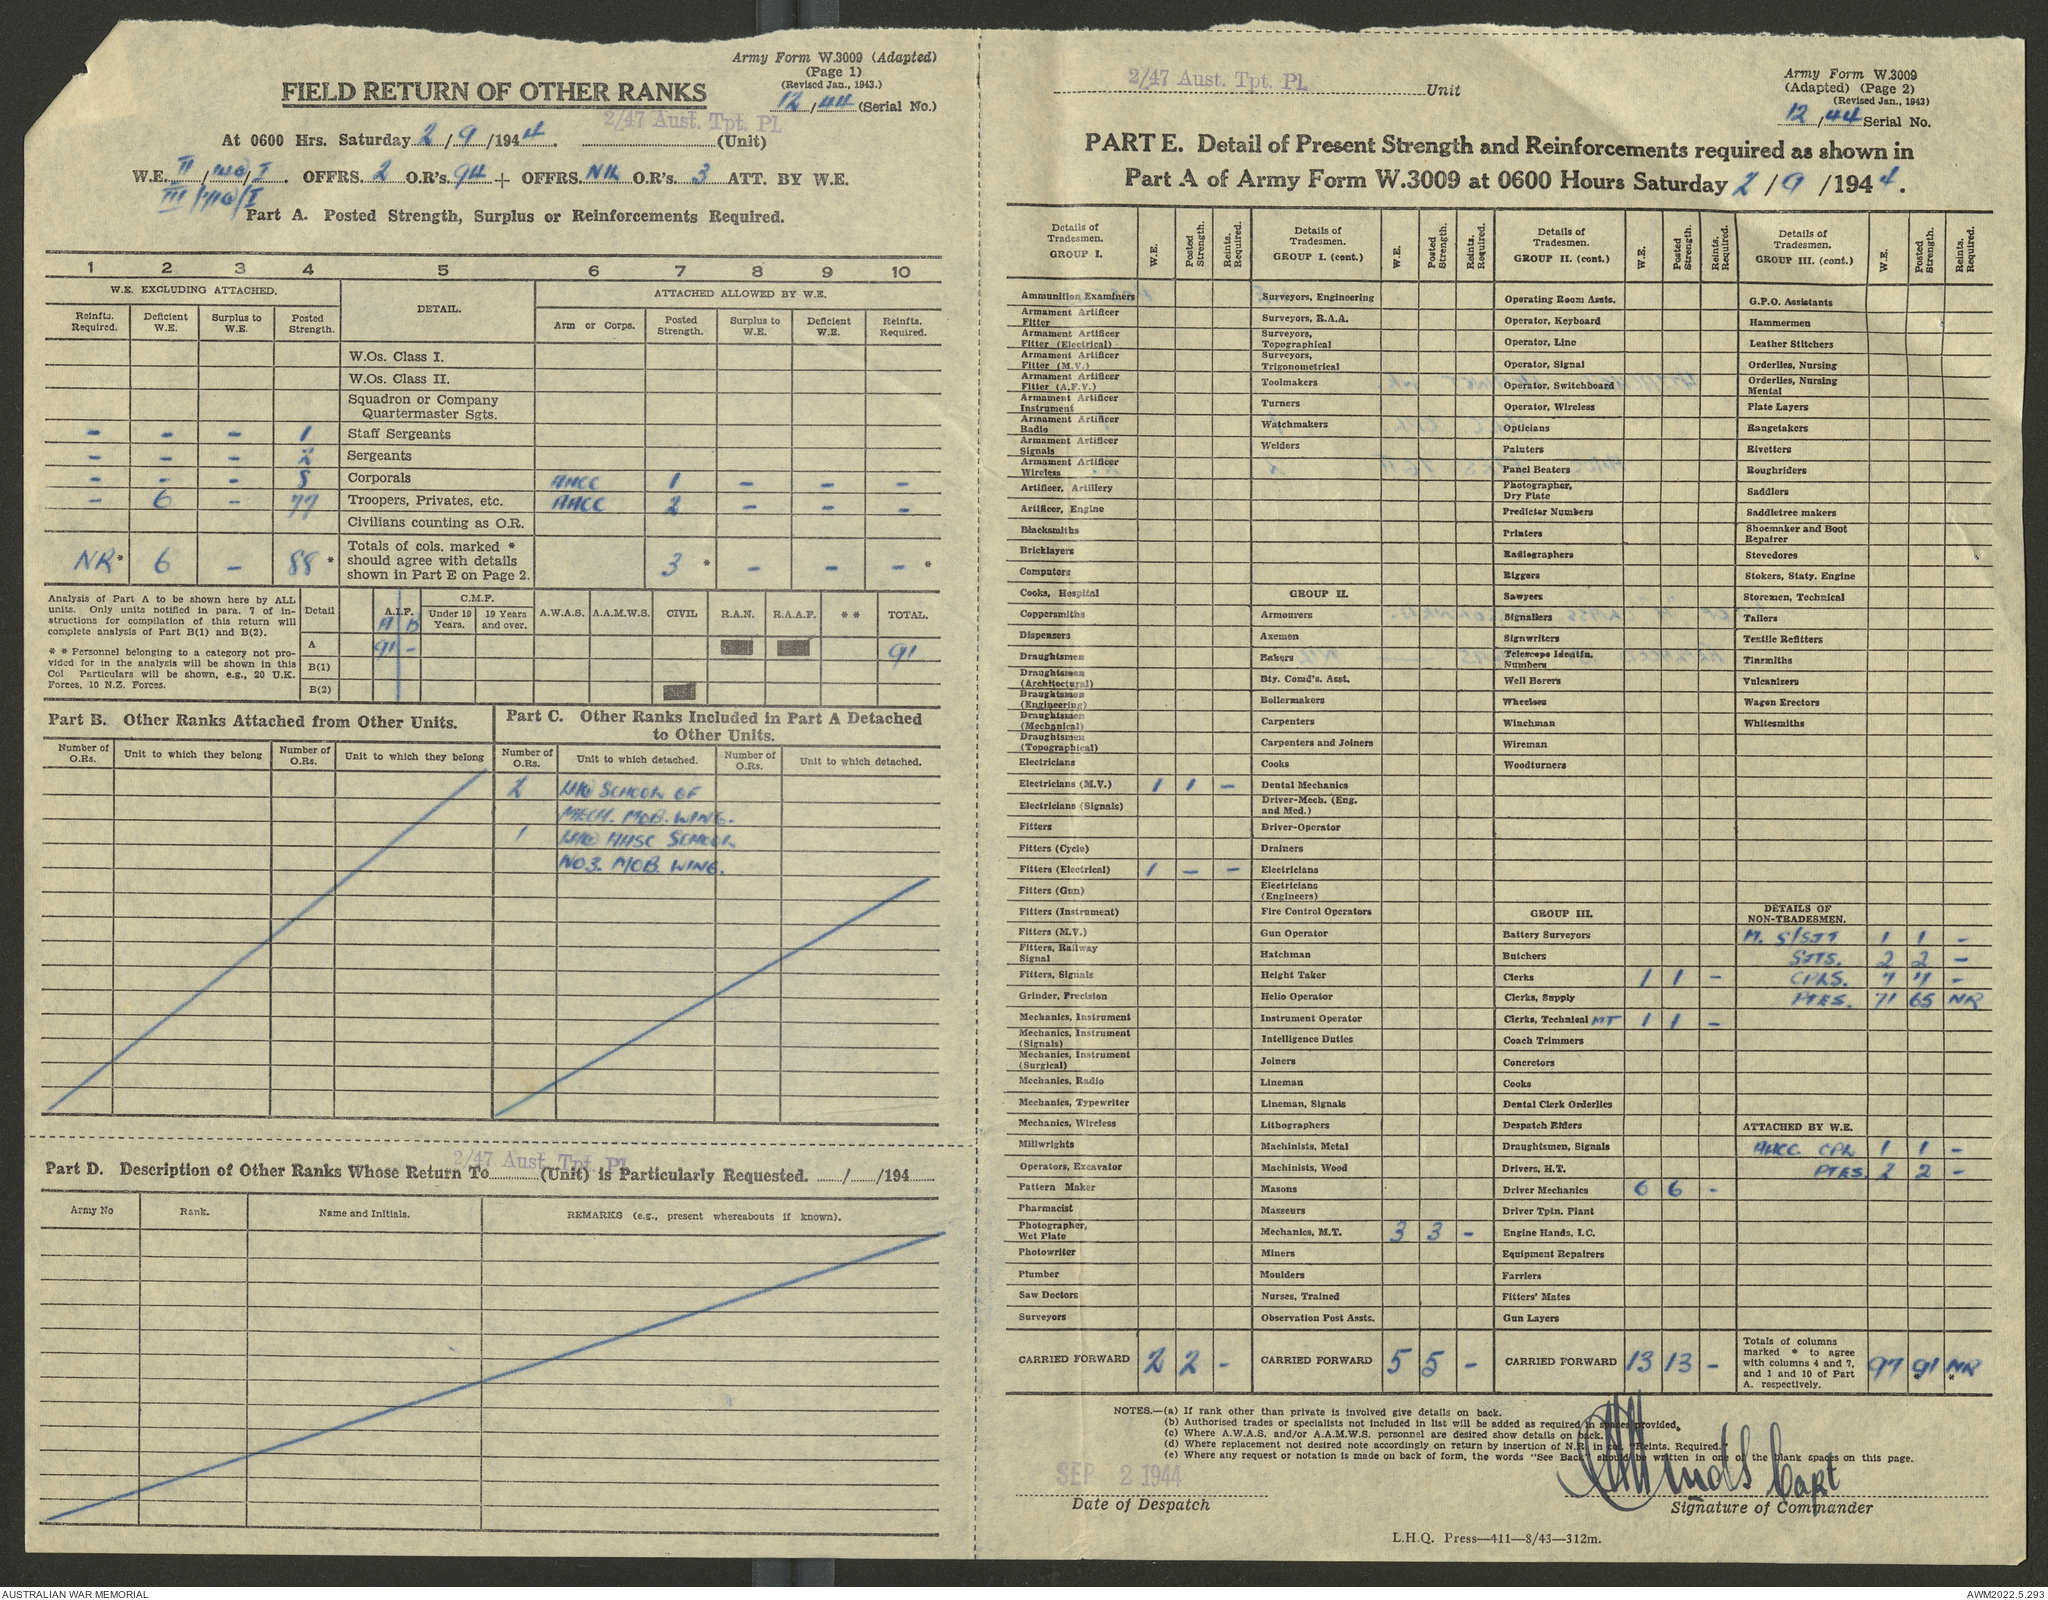 Army Form W.3009 (Adapted)
(Page 1)
(Revised Jan., 1943.)
FIELD RETURN OF OTHER RANKS
12/44 (Serial No.)
2/47 Aust. Tpt. Pl.
At 0600 Hrs. Saturday 2/9/1944. (Unit)
W.E. II/ /I. OFFRS. 2 O.R's. 94 + OFFRS. NIL O.R's. 3 ATT. BY W.E.
III/ /I
Part A. Posted Strength, Surplus or Reinforcements Required.
1 2 3 4 5 6 7 8 9 10
W.E. EXCLUDING ATTACHED. DETAIL. ATTACHED ALLOWED BY W.E.
Reinfts. Required. Deficient W.E. Surplus to W.E. Posted Strength. Arm or Corps. Posted Strength. Surplus to W.E. Deficient W.E. Reinfts. Required.
W.Os. Class I.
W.Os. Class II.
Squadron or Company
Quartermaster Sgts.
- - - 1 Staff Sergeants
- - - 2 Sergeants
- - - 8 Corporals AACC 1 - - -
- 6 - 77 Troopers, Privates, etc. AACC 2 - - -
Civilians counting as O.R.
NR* 6 - 88 * Totals of cols. marked * should agree with details shown in Part E on Page 2. 3 * - - - *
Analysis of Part A to be shown here by ALL
units. Only units notified in para. 7 of in-
structions for compilation of this return will
complete analysis of Part B(1) and B(2).
* * Personnel belonging to a category not pro-
vided for in the analysis will be shown in this
Col Particulars will be shown, e.g., 20 U.K.
Forces, 10 N.Z. Forces.
Detail A.I.F. A B C.M.F. Under 19 Years. 19 Years and over. A.W.A.S. A.A.M.W.S. CIVIL R.A.N. R.A.A.F. * * TOTAL.
A 91 - 91
B(1)
B(2)
Part B. Other Ranks Attached from Other Units.
Number of O.Rs. Unit to which they belong Number of O.Rs. Unit to which they belong
Part C. Other Ranks Included in Part A Detached
to Other Units.
Number of O.Rs. Unit to which detached. Number of O.Rs. Unit to which detached.
2 LHQ SCHOOL OF
MECH. MOB. WING.
1 LHQ AASC SCHOOL
NO3. MOB. WING.
2/47 Aust. Tpt. Pl.
Part D. Description of Other Ranks Whose Return To (Unit) is Particularly Requested. / /194
Army No Rank. Name and Initials. REMARKS (e.g., present whereabouts if known).
2/47 Aust. Tpt. Pl. Unit
Army Form W.3009
(Adapted) (Page 2)
(Revised Jan., 1943)
12/44 Serial No.
PART E. Detail of Present Strength and Reinforcements required as shown in
Part A of Army Form W.3009 at 0600 Hours Saturday 2/9/1944.
Details of Tradesmen. GROUP I. W.E. Posted Strength. Reints. Required.
Ammunition Examiners
Armament Artificer Fitter
Armament Artificer Fitter (Electrical)
Armament Artificer Fitter (M.V.)
Armament Artificer Fitter (A.F.V.)
Armament Artificer Instrument
Armament Artificer Radio
Armament Artificer Signals
Armament Artificer Wireless
Artificer, Artillery
Artificer, Engine
Blacksmiths
Bricklayers
Computors
Cooks, Hospital
Coppersmiths
Dispensers
Draughtsmen
Draughtsmen (Architectural)
Draughtsmen (Engineering)
Draughtsmen (Mechanical)
Draughtsmen (Topographical)
Electricians
Electricians (M.V.) 1 1 -
Electricians (Signals)
Fitters
Fitters (Cycle)
Fitters (Electrical) 1 - -
Fitters (Gun)
Fitters (Instrument)
Fitters (M.V.)
Fitters, Railway Signal
Fitters, Signals
Grinder, Precision
Mechanics, Instrument
Mechanics, Instrument (Signals)
Mechanics, Instrument (Surgical)
Mechanics, Radio
Mechanics, Typewriter
Mechanics, Wireless
Millwrights
Operators, Excavator
Pattern Maker
Pharmacist
Photographer, Wet Plate
Photowriter
Plumber
Saw Doctors
Surveyors
CARRIED FORWARD 2 2 -
Details of Tradesmen. GROUP I. (cont.) W.E. Posted Strength. Reints. Required.
Surveyors, Engineering
Surveyors, R.A.A.
Surveyors, Topographical
Surveyors, Trigonometrical
Toolmakers
Turners
Watchmakers
Welders
GROUP II.
Armourers
Axemen
Bakers
Bty. Comd's. Asst.
Boilermakers
Carpenters
Carpenters and Joiners
Cooks
Dental Mechanics
Driver-Mech. (Eng. and Med.)
Driver-Operator
Drainers
Electricians
Electricians (Engineers)
Fire Control Operators
Gun Operator
Hatchman
Height Taker
Helio Operator
Instrument Operator
Intelligence Duties
Joiners
Lineman
Lineman, Signals
Lithographers
Machinists, Metal
Machinists, Wood
Masons
Masseurs
Mechanics, M.T. 3 3 -
Miners
Moulders
Nurses, Trained
Observation Post Assts.
CARRIED FORWARD 5 5 -
Details of Tradesmen. GROUP II. (cont.) W.E. Posted Strength. Reints. Required.
Operating Room Assts.
Operator, Keyboard
Operator, Line
Operator, Signal
Operator, Switchboard
Operator, Wireless
Opticians
Painters
Panel Beaters
Photographer, Dry Plate
Predictor Numbers
Printers
Radiographers
Riggers
Sawyers
Signallers
Signwriters
Telescope Identfn. Numbers
Well Borers
Wheelers
Winchman
Wireman
Woodturners
GROUP III.
Battery Surveyors
Butchers
Clerks 1 1 -
Clerks, Supply
Clerks, Technical MT 1 1 -
Coach Trimmers
Concretors
Cooks
Dental Clerk Orderlies
Despatch Riders
Draughtsmen, Signals
Drivers, H.T.
Driver Mechanics 6 6 -
Driver Tptn. Plant
Engine Hands, I.C.
Equipment Repairers
Farriers
Fitters' Mates
Gun Layers
CARRIED FORWARD 13 13 -
Details of Tradesmen. GROUP III. (cont.) W.E. Posted Strength. Reints. Required.
G.P.O. Assistants
Hammermen
Leather Stitchers
Orderlies, Nursing
Orderlies, Nursing Mental
Plate Layers
Rangetakers
Rivetters
Roughriders
Saddlers
Saddletree makers
Shoemaker and Boot Repairer
Stevedores
Stokers, Staty. Engine
Storemen, Technical
Tailors
Textile Refitters
Tinsmiths
Vulcanizers
Wagon Erectors
Whitesmiths
DETAILS OF NON-TRADESMEN.
A. S/SJT 1 1 -
SJTS. 2 2 -
CPLS. 7 7 -
PTES. 71 65 NR
ATTACHED BY W.E.
AACC. CPL 1 1 -
PTES. 2 2 -
Totals of columns marked * to agree with columns 4 and 7, and 1 and 10 of Part A. respectively. 97 91 * NR *
NOTES.—(a) If rank other than private is involved give details on back.
(b) Authorised trades or specialists not included in list will be added as required in spaces provided.
(c) Where A.W.A.S. and/or A.A.M.W.S. personnel are desired show details on back.
(d) Where replacement not desired note accordingly on return by insertion of N.R. in col. "Reints. Required."
(e) Where any request or notation is made on back of form, the words "See Back" should be written in one of the blank spaces on this page.
SEP 2 1944
Capt
Date of Despatch
Signature of Commander
L.H.Q. Press—411—8/43—312m.
AUSTRALIAN WAR MEMORIAL
AWM2022.5.293